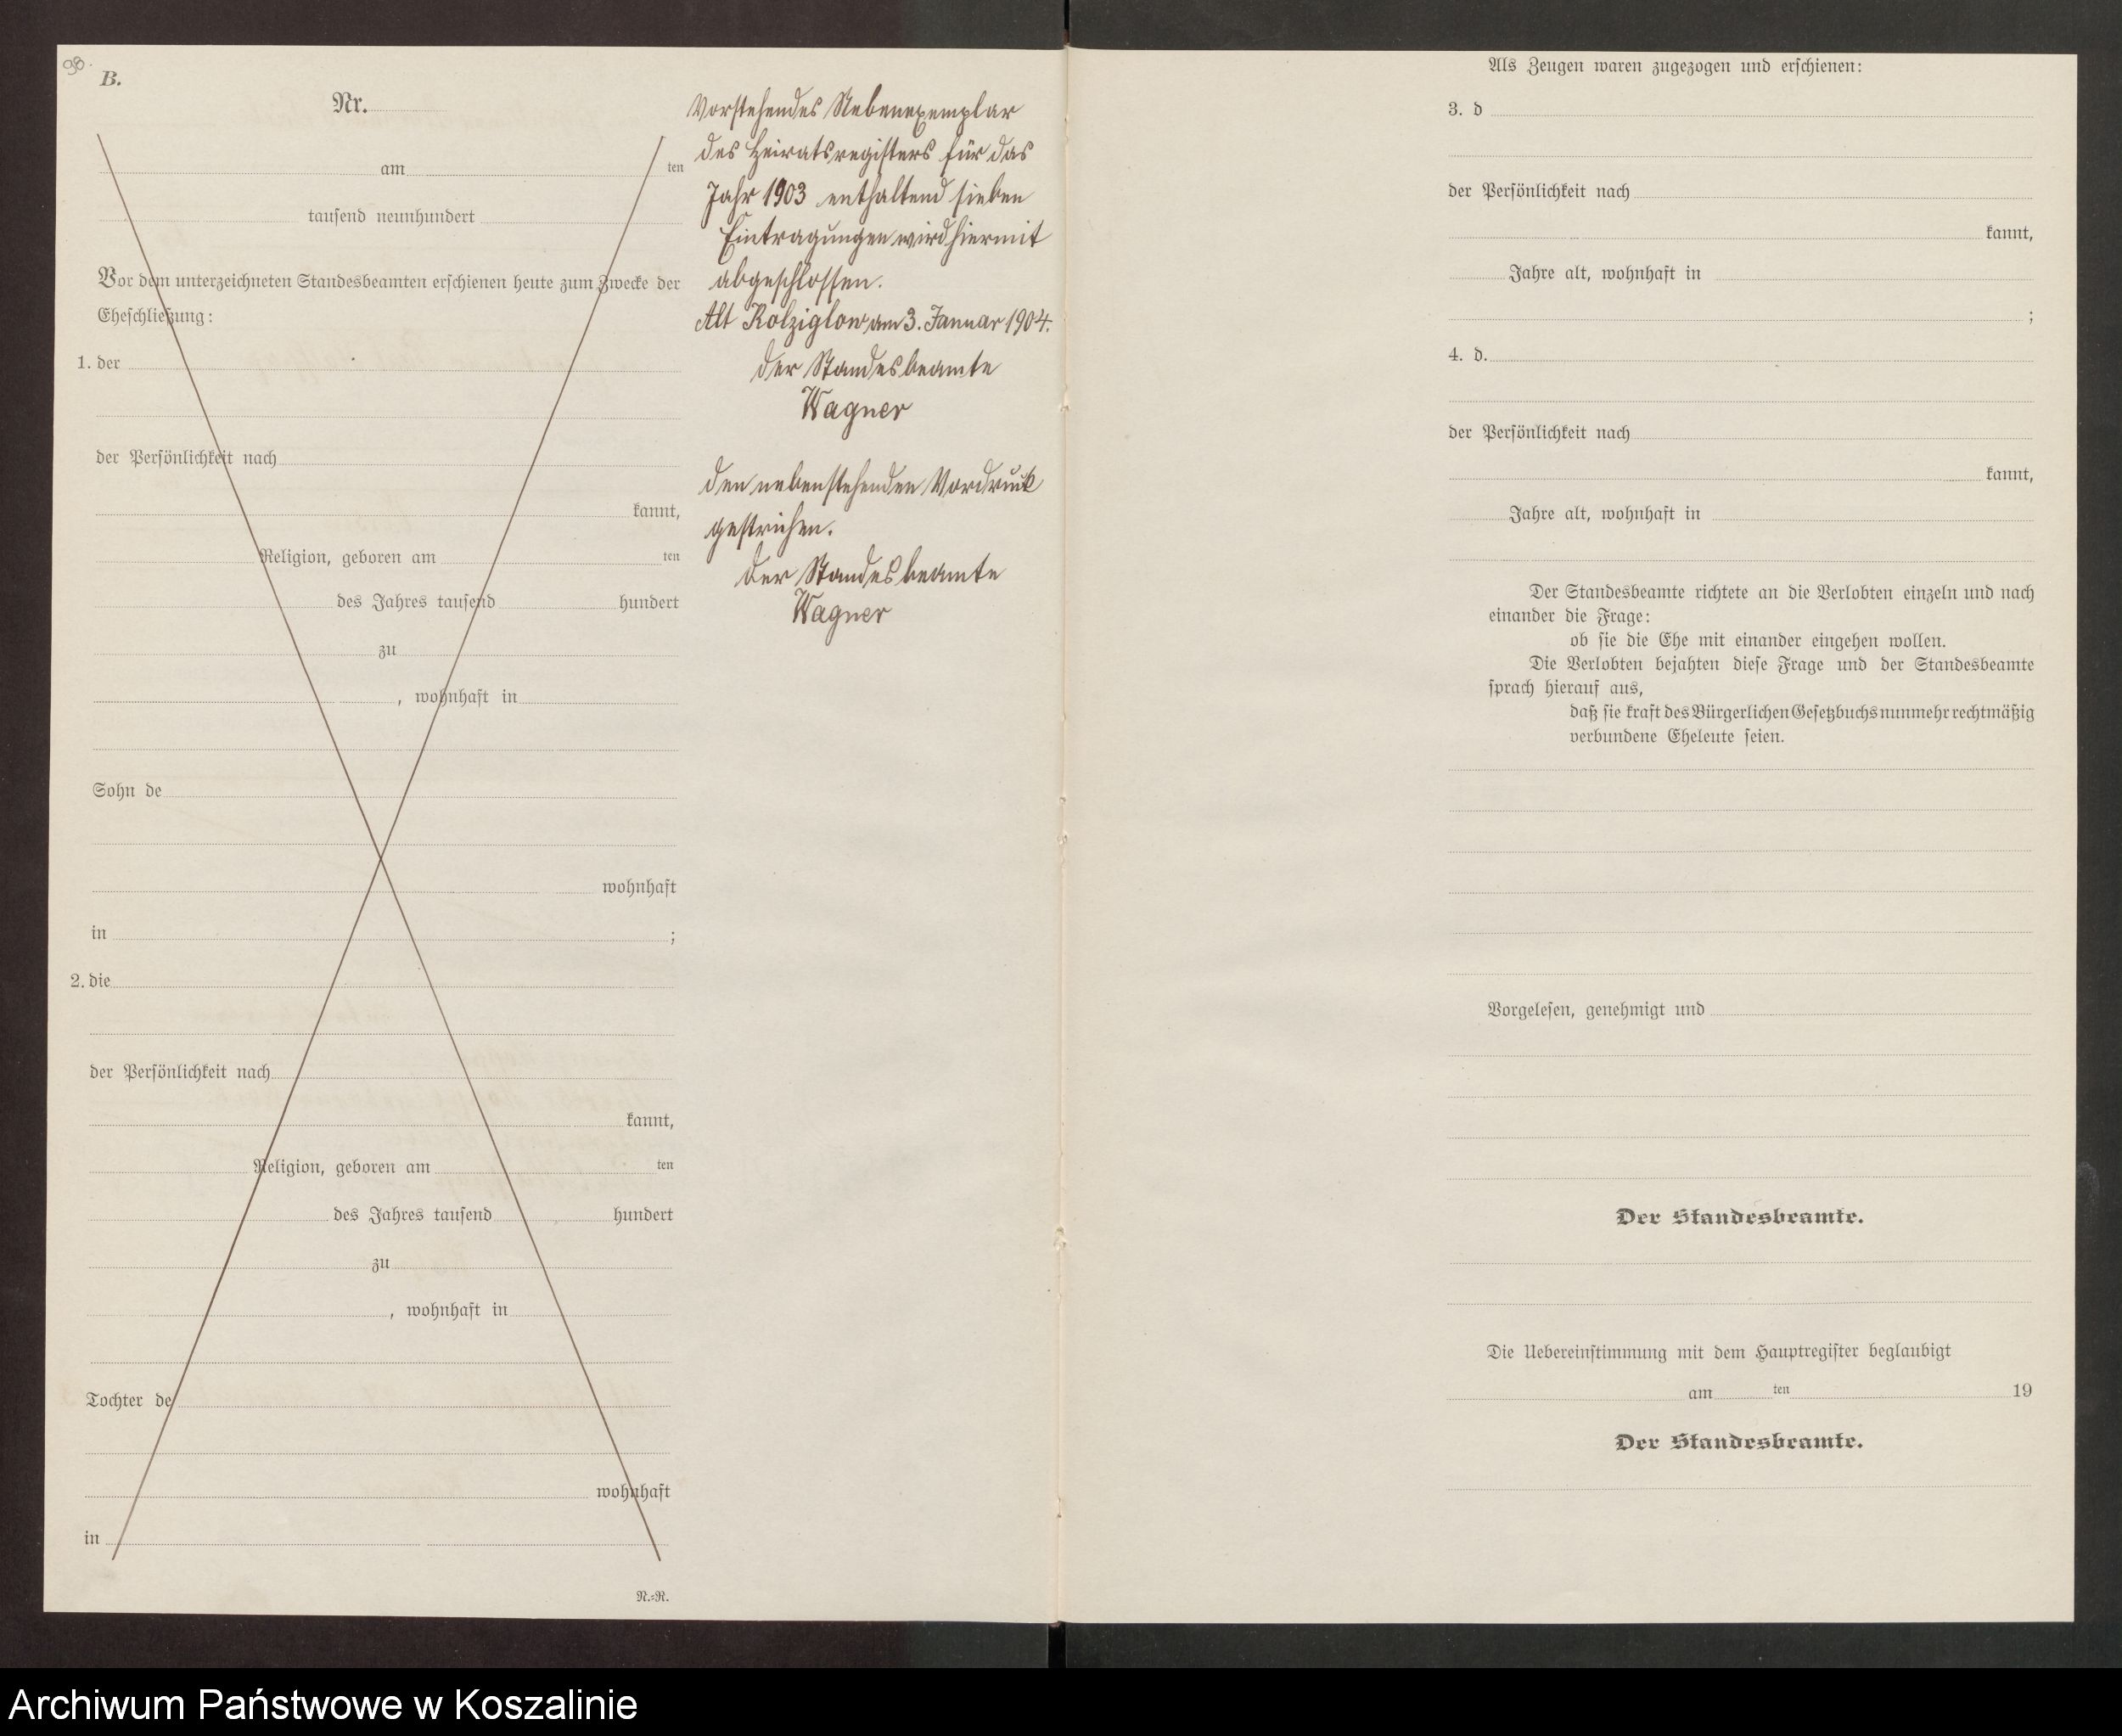 98.
B.
Nr.
am ten
tausend neunhundert
Vor dem unterzeichneten Standesbeamten erschienen heute zum Zwecke der
Eheschließung:
1. der
der Persönlichkeit nach
kannt,
Religion, geboren am ten
des Jahres tausend hundert
zu
, wohnhaft in
Sohn de
wohnhaft
in ;
2. die
der Persönlichkeit nach
kannt,
Religion, geboren am ten
des Jahres tausend hundert
zu
, wohnhaft in
Tochter de
wohnhaft
in
N.=R.
Vorstehendes Nebenexemplar
des Heiratsregisters für das
Jahr 1903 enthaltend sieben
Eintragungen wird hiermit
abgeschlossen.
Alt Kolziglow am 3. Januar 1904.
Der Standesbeamte
Wagner
Den nebenstehenden Vordruck
gestrichen.
Der Standesbeamte
Wagner
Als Zeugen waren zugezogen und erschienen:
3. d
der Persönlichkeit nach
kannt,
Jahre alt, wohnhaft in
;
4. d.
der Persönlichkeit nach
kannt,
Jahre alt, wohnhaft in
Der Standesbeamte richtete an die Verlobten einzeln und nach
einander die Frage:
ob sie die Ehe mit einander eingehen wollen.
Die Verlobten bejahten diese Frage und der Standesbeamte
sprach hierauf aus,
daß sie kraft des Bürgerlichen Gesetzbuchs nunmehr rechtmäßig
verbundene Eheleute seien.
Vorgelesen, genehmigt und
Der Standesbeamte.
Die Uebereinstimmung mit dem Hauptregister beglaubigt
am ten 19
Der Standesbeamte.
Archiwum Państwowe w Koszalinie